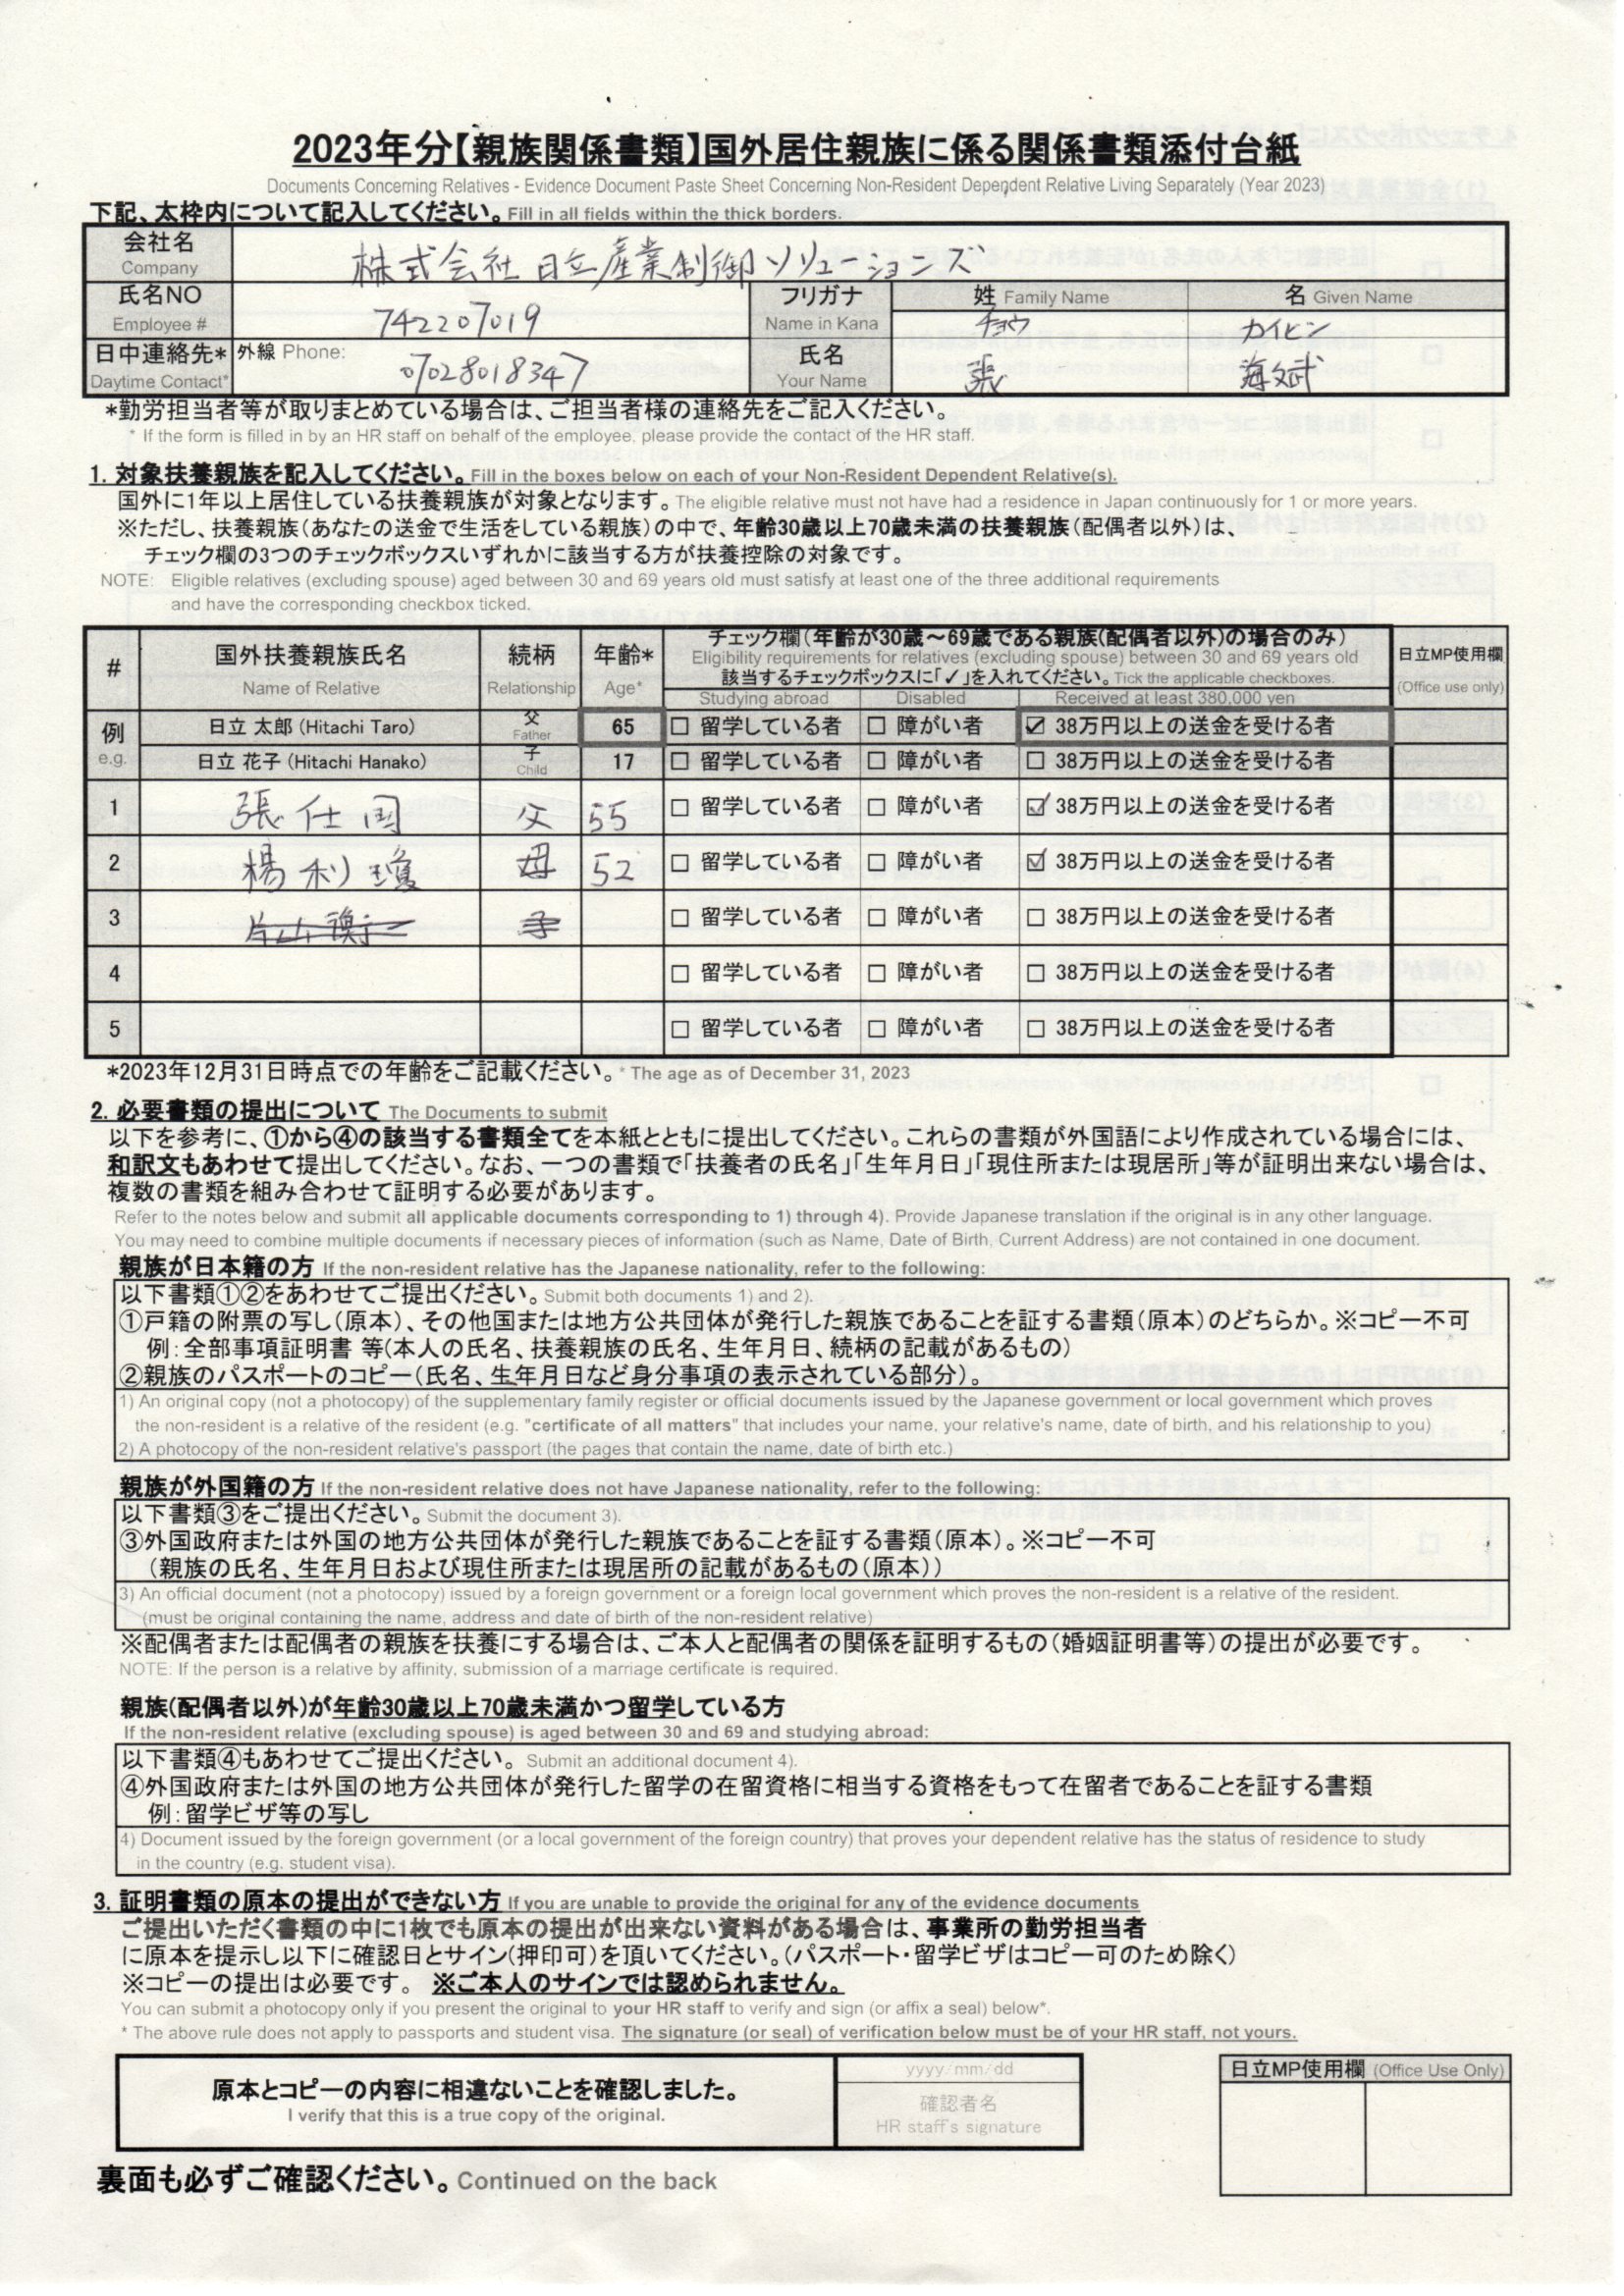 2023年分【親族関係書類】国外居住親族に係る関係書類添付台紙
Documents Concerning Relatives - Evidence Document Paste Sheet Concerning Non-Resident Dependent Relative Living Separately (Year 2023)
下記、太枠内について記入してください。Fill in all fields within the thick borders.
会社名 Company 株式会社 日立産業制御ソリューションズ
氏名NO Employee # 742207019 フリガナ Name in Kana 姓 Family Name チョウ 名 Given Name カイヒン
日中連絡先* Daytime Contact* 外線 Phone: 07028018347 氏名 Your Name 張 海斌
*勤労担当者等が取りまとめている場合は、ご担当者様の連絡先をご記入ください。
* If the form is filled in by an HR staff on behalf of the employee, please provide the contact of the HR staff.
1. 対象扶養親族を記入してください。Fill in the boxes below on each of your Non-Resident Dependent Relative(s).
国外に1年以上居住している扶養親族が対象となります。The eligible relative must not have had a residence in Japan continuously for 1 or more years.
※ただし、扶養親族(あなたの送金で生活をしている親族)の中で、年齢30歳以上70歳未満の扶養親族(配偶者以外)は、
チェック欄の3つのチェックボックスいずれかに該当する方が扶養控除の対象です。
NOTE: Eligible relatives (excluding spouse) aged between 30 and 69 years old must satisfy at least one of the three additional requirements
and have the corresponding checkbox ticked.
# 国外扶養親族氏名 Name of Relative 続柄 Relationship 年齢* Age* チェック欄(年齢が30歳～69歳である親族(配偶者以外)の場合のみ) 日立MP使用欄 (Office use only)
Eligibility requirements for relatives (excluding spouse) between 30 and 69 years old
該当するチェックボックスに「✓」を入れてください。Tick the applicable checkboxes.
Studying abroad Disabled Received at least 380,000 yen
例 e.g. 日立 太郎 (Hitachi Taro) 父 Father 65 □ 留学している者 □ 障がい者 ☑ 38万円以上の送金を受ける者
日立 花子 (Hitachi Hanako) 子 Child 17 □ 留学している者 □ 障がい者 □ 38万円以上の送金を受ける者
1 張 仕国 父 55 □ 留学している者 □ 障がい者 ☑ 38万円以上の送金を受ける者
2 楊 利瓊 母 52 □ 留学している者 □ 障がい者 ☑ 38万円以上の送金を受ける者
3 □ 留学している者 □ 障がい者 □ 38万円以上の送金を受ける者
4 □ 留学している者 □ 障がい者 □ 38万円以上の送金を受ける者
5 □ 留学している者 □ 障がい者 □ 38万円以上の送金を受ける者
*2023年12月31日時点での年齢をご記載ください。* The age as of December 31, 2023
2. 必要書類の提出について The Documents to submit
以下を参考に、①から④の該当する書類全てを本紙とともに提出してください。これらの書類が外国語により作成されている場合には、
和訳文もあわせて提出してください。なお、一つの書類で「扶養者の氏名」「生年月日」「現住所または現居所」等が証明出来ない場合は、
複数の書類を組み合わせて証明する必要があります。
Refer to the notes below and submit all applicable documents corresponding to 1) through 4). Provide Japanese translation if the original is in any other language.
You may need to combine multiple documents if necessary pieces of information (such as Name, Date of Birth, Current Address) are not contained in one document.
親族が日本籍の方 If the non-resident relative has the Japanese nationality, refer to the following:
以下書類①②をあわせてご提出ください。Submit both documents 1) and 2).
①戸籍の附票の写し(原本)、その他国または地方公共団体が発行した親族であることを証する書類(原本)のどちらか。※コピー不可
例:全部事項証明書 等(本人の氏名、扶養親族の氏名、生年月日、続柄の記載があるもの)
②親族のパスポートのコピー(氏名、生年月日など身分事項の表示されている部分)。
1) An original copy (not a photocopy) of the supplementary family register or official documents issued by the Japanese government or local government which proves
the non-resident is a relative of the resident (e.g. "certificate of all matters" that includes your name, your relative's name, date of birth, and his relationship to you)
2) A photocopy of the non-resident relative's passport (the pages that contain the name, date of birth etc.)
親族が外国籍の方 If the non-resident relative does not have Japanese nationality, refer to the following:
以下書類③をご提出ください。Submit the document 3).
③外国政府または外国の地方公共団体が発行した親族であることを証する書類(原本)。※コピー不可
(親族の氏名、生年月日および現住所または現居所の記載があるもの(原本))
3) An official document (not a photocopy) issued by a foreign government or a foreign local government which proves the non-resident is a relative of the resident.
(must be original containing the name, address and date of birth of the non-resident relative)
※配偶者または配偶者の親族を扶養にする場合は、ご本人と配偶者の関係を証明するもの(婚姻証明書等)の提出が必要です。
NOTE: If the person is a relative by affinity, submission of a marriage certificate is required.
親族(配偶者以外)が年齢30歳以上70歳未満かつ留学している方
If the non-resident relative (excluding spouse) is aged between 30 and 69 and studying abroad:
以下書類④もあわせてご提出ください。Submit an additional document 4).
④外国政府または外国の地方公共団体が発行した留学の在留資格に相当する資格をもって在留者であることを証する書類
例:留学ビザ等の写し
4) Document issued by the foreign government (or a local government of the foreign country) that proves your dependent relative has the status of residence to study
in the country (e.g. student visa).
3. 証明書類の原本の提出ができない方 If you are unable to provide the original for any of the evidence documents
ご提出いただく書類の中に1枚でも原本の提出が出来ない資料がある場合は、事業所の勤労担当者
に原本を提示し以下に確認日とサイン(押印可)を頂いてください。(パスポート・留学ビザはコピー可のため除く)
※コピーの提出は必要です。 ※ご本人のサインでは認められません。
You can submit a photocopy only if you present the original to your HR staff to verify and sign (or affix a seal) below*.
* The above rule does not apply to passports and student visa. The signature (or seal) of verification below must be of your HR staff, not yours.
原本とコピーの内容に相違ないことを確認しました。
I verify that this is a true copy of the original.
yyyy/mm/dd
確認者名
HR staff's signature
日立MP使用欄 (Office Use Only)
裏面も必ずご確認ください。Continued on the back